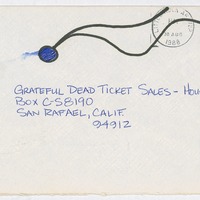 1988
GRATEFUL DEAD TICKET SALES - HOU
BOX C-S8190
SAN RAFAEL, CALIF.
94912